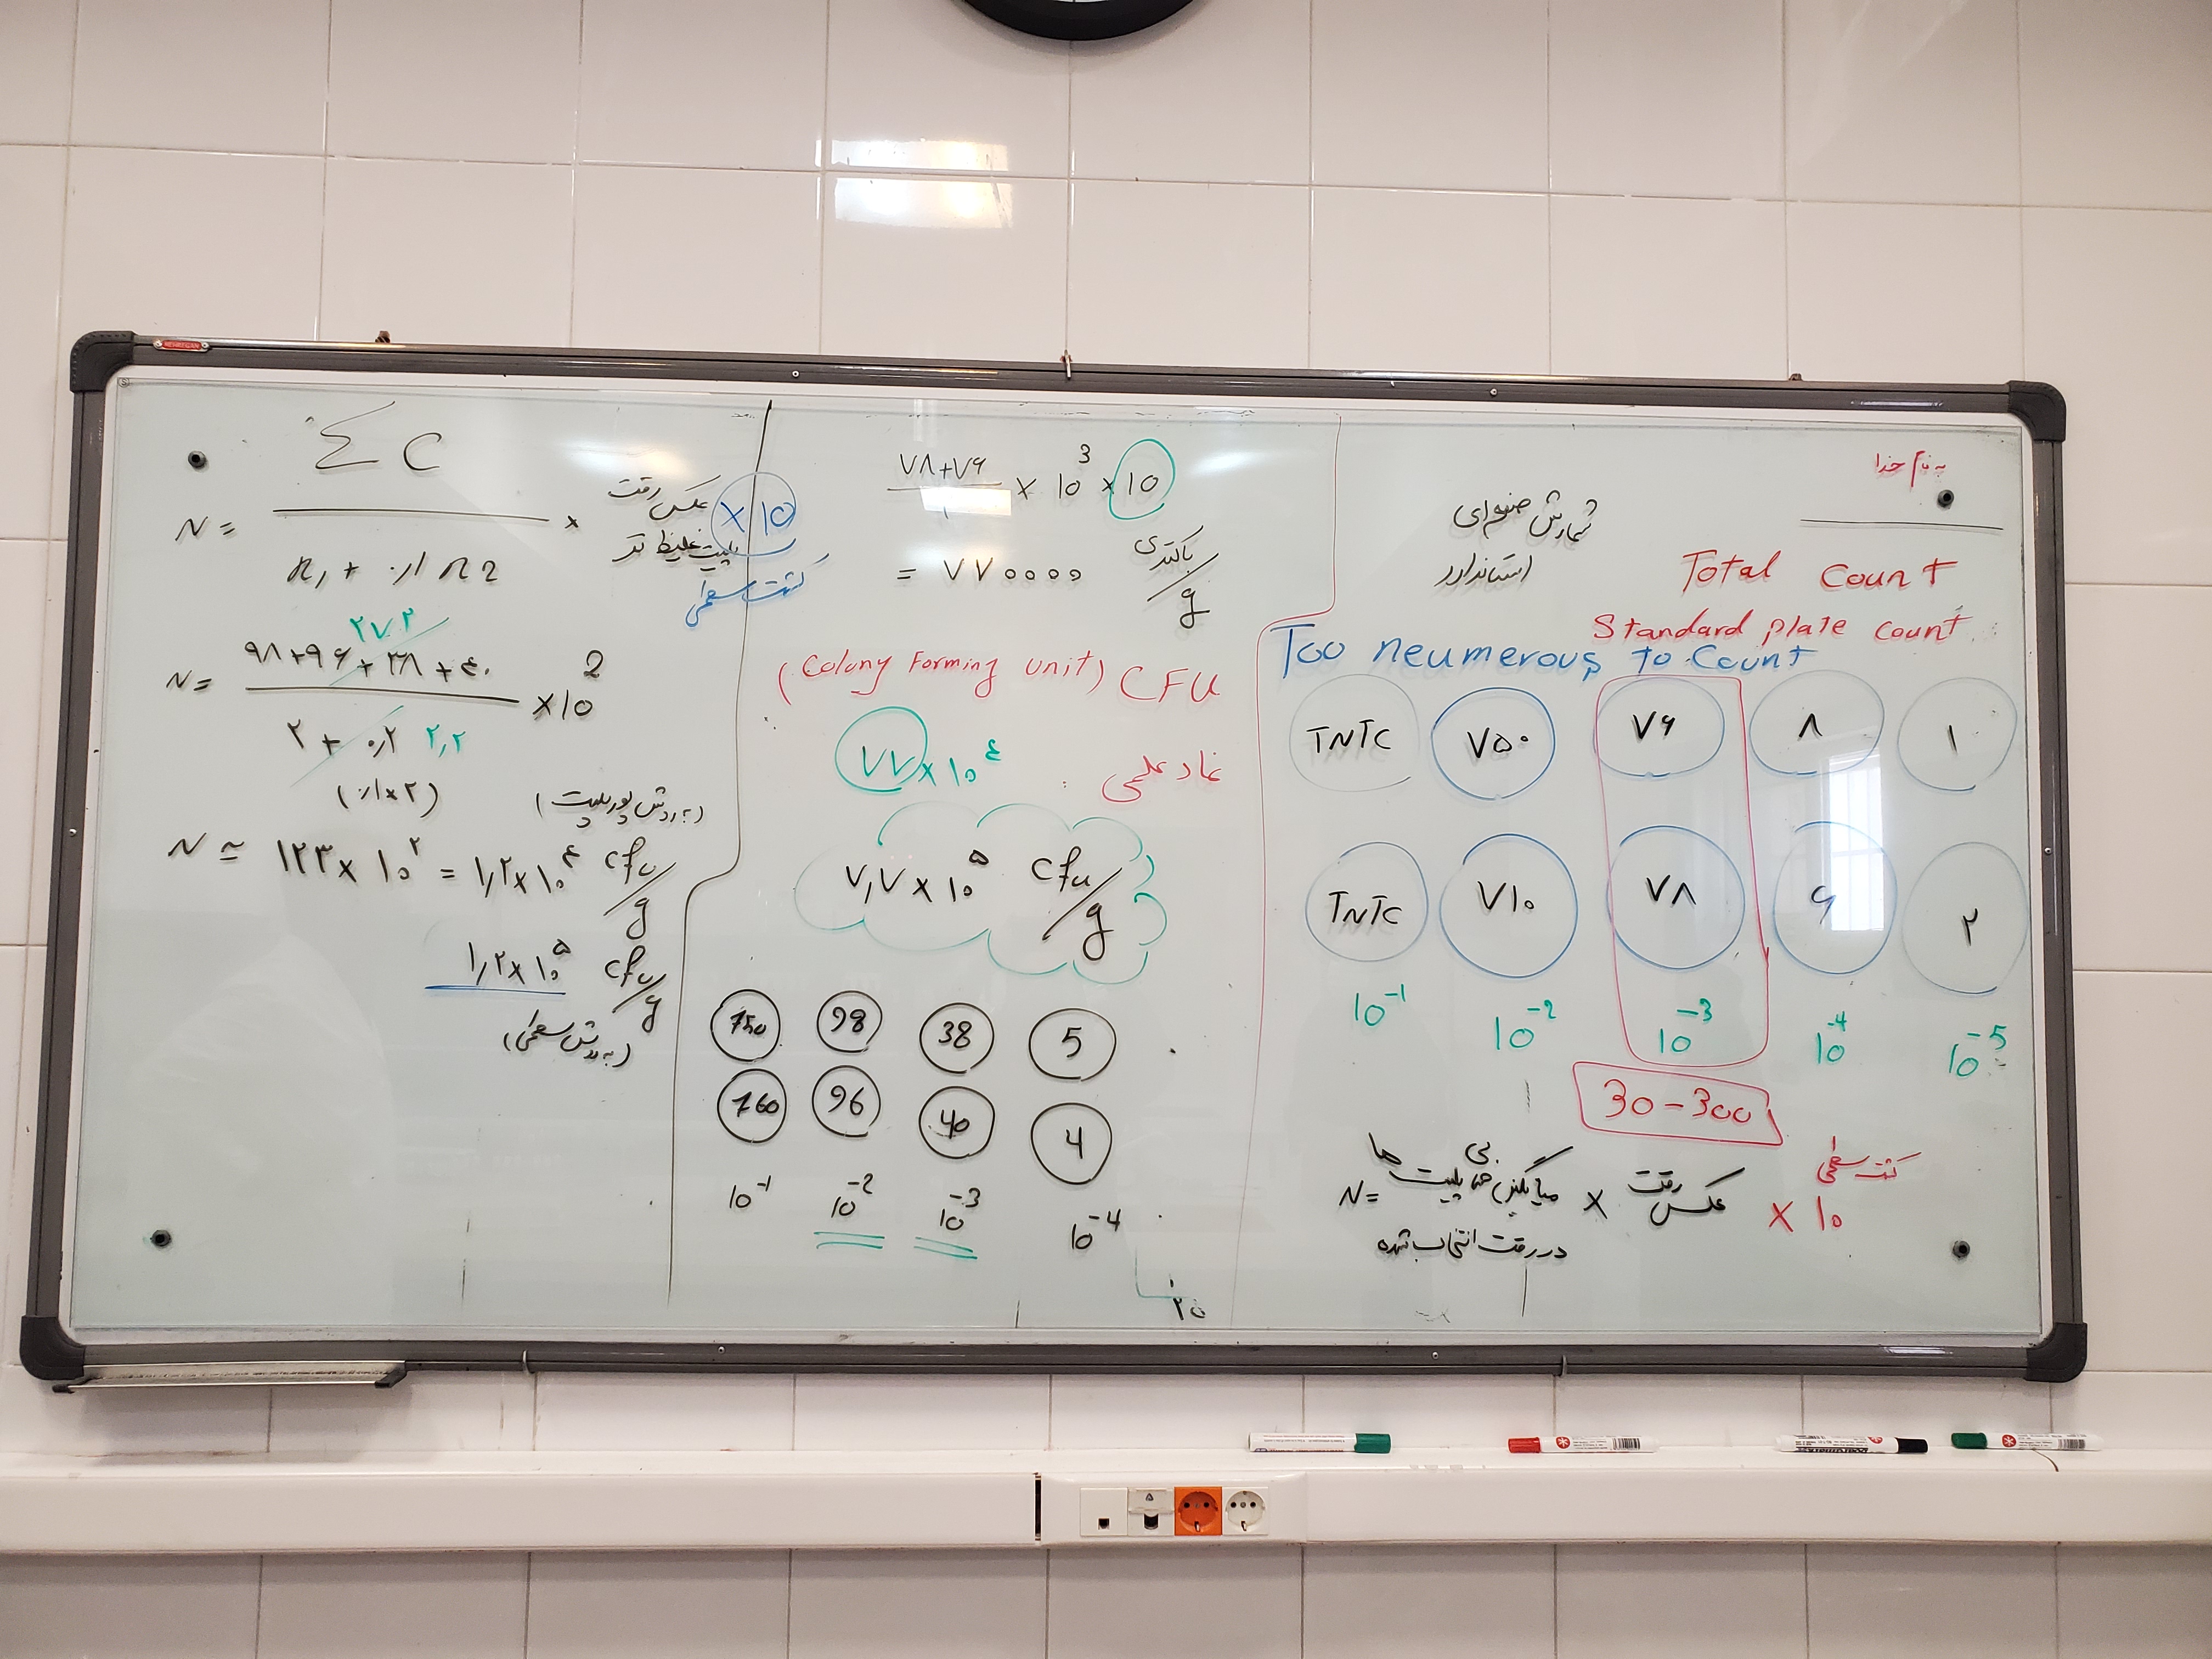 به نام خدا
شمارش صفحه‌ای
استاندارد
Total Count
Standard plate Count
Too neumerous to Count
TNTC ۷۵۰ ۷۶ ۸ ۱
TNTC ۷۱۰ ۷۸ ۶ ۲
10⁻¹ 10⁻² 10⁻³ 10⁻⁴ 10⁻⁵
30-300
N = میانگین کلنی پلیت ها × عکس رقت × 10
کشت سطحی
در رقت انتخاب شده
۷۸+۷۶ × 10³ × 10
= ۷۷۰۰۰۰ باکتری/g
(Colony Forming unit) CFU
نماد علمی : ۷۷ × ۱۰⁴
۷٫۷ × ۱۰⁵ cfu/g
750 98 38 5
760 96 40 4
10⁻¹ 10⁻² 10⁻³ 10⁻⁴
N = ΣC / n₁ + ۰/۱ n2 × عکس رقت پلیت غلیظ تر × 10
کشت سطحی
۲۷۲
N = ۹۸+۹۶+۳۸+۴۰ / ۲ + ۰٫۲ × 10²
۲٫۲
(۰/۱×۲)
(به روش پورپلیت)
N ≃ ۱۲۳ × ۱۰² = ۱٫۲×۱۰⁴ cfu/g
۱٫۲×۱۰⁵ cfu/g
(به روش سطحی)